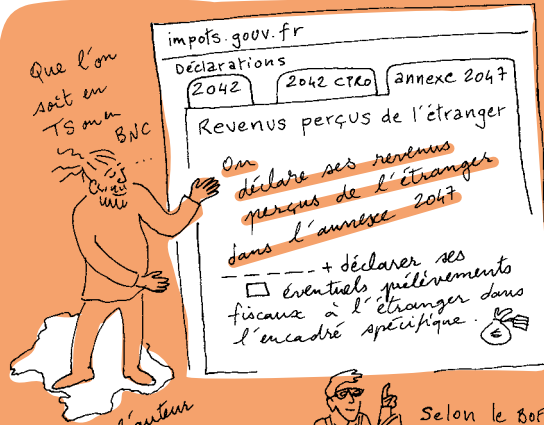 Que l'on
soit en
TS ou en
BNC
...
impots.gouv.fr
Déclarations
2042
2042 CPRO
annexe 2047
Revenus perçus de l'étranger
On
déclare ses revenus
perçus de l'étranger
dans l'annexe 2047
+ déclarer ses
éventuels prélèvements
fiscaux à l'étranger dans
l'encadré spécifique.
l'auteur
Selon le BOF